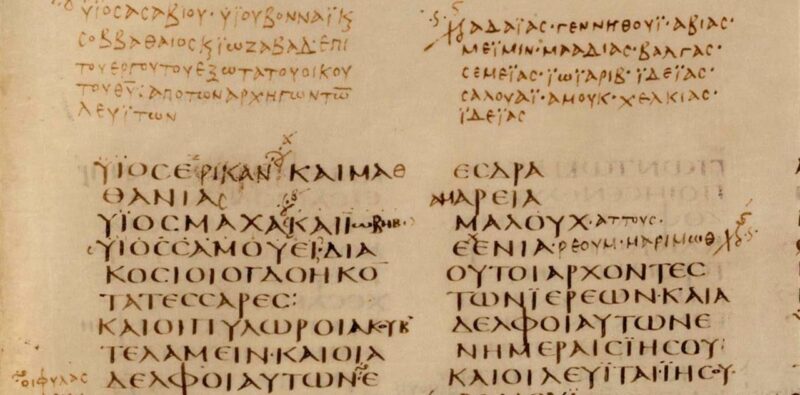 ΥΙΟΣΑΣΑΒΙΟΥ·ΥΙΟΥΒΟΝΝΑΪϏ
ΣΟΒΒΑΘΑΙΟΣϏΪΩΖΑΒΑΔ·ΕΠΙ
ΤΟΥΕΡΓΟΥΤΟΥΕΞΩΤΑΤΟΥΟΙΚΟΥ
ΤΟΥΘΥ̅·ΑΠΟΤΩΝΑΡΧΗΓΩΝΤΩ̅
ΛΕΥΙΤΩΝ
ΫΪΟϹΕΡΙΚΑΝΚΑΙΜΑΘ
ΘΑΝΙΑϹ
ΫΪΟϹΜΑΧΑΚΑΙΪΩΒΗΒ·
ΥΪΟϹϹΑΜΟΥΕΙΔΙΑ
ΚΟϹΙΟΙΟΓΔΟΗΚΟ
ΤΑΤΕϹϹΑΡΕϹ:
ΚΑΙΟΙΠΥΛΩΡΟΙΑΚΟΥΚ
ΤΕΛΑΜΕΙΝ·ΚΑΙΟΙΑ
ΟΙΦΥΛΑΣ
ΔΕΛΦΟΙΑΥΤΩΝΕ
ΑΔΑΪΑΣ·ΓΕΝΝΗΘΟΥΪ·ΑΒΙΑΣ·
ΜΕΪΜΙΝ·ΜΑΑΔΙΑΣ·ΒΑΛΓΑΣ·
ΣΕΜΕΪΑΣ·ΪΩΪΑΡΙΒ·ΪΔΕΪΑΣ·
ΣΑΛΟΥΑΪ·ΑΜΟΥΚ·ΧΕΛΚΙΑΣ·
ΪΔΕΪΑΣ
ΕϹΑΡΑ
ΑΜΑΡΕΙΑ
ΜΑΛΟΥΧ·ΑΤΤΟΥΣ·
ΕΧΕΝΙΑ·ΡΕΟΥΜ·ΜΑΡΙΜΩΘ
ΟΥΤΟΙΑΡΧΟΝΤΕϹ
ΤΩΝΪΕΡΕΩΝ·ΚΑΙΑ
ΔΕΛΦΟΙΑΥΤΩΝΕ
ΝΗΜΕΡΑΙϹΪΗϹΟΥ·
ΚΑΙΟΙΛΕΥΪΤΑΙΪΗϹΟΥ·